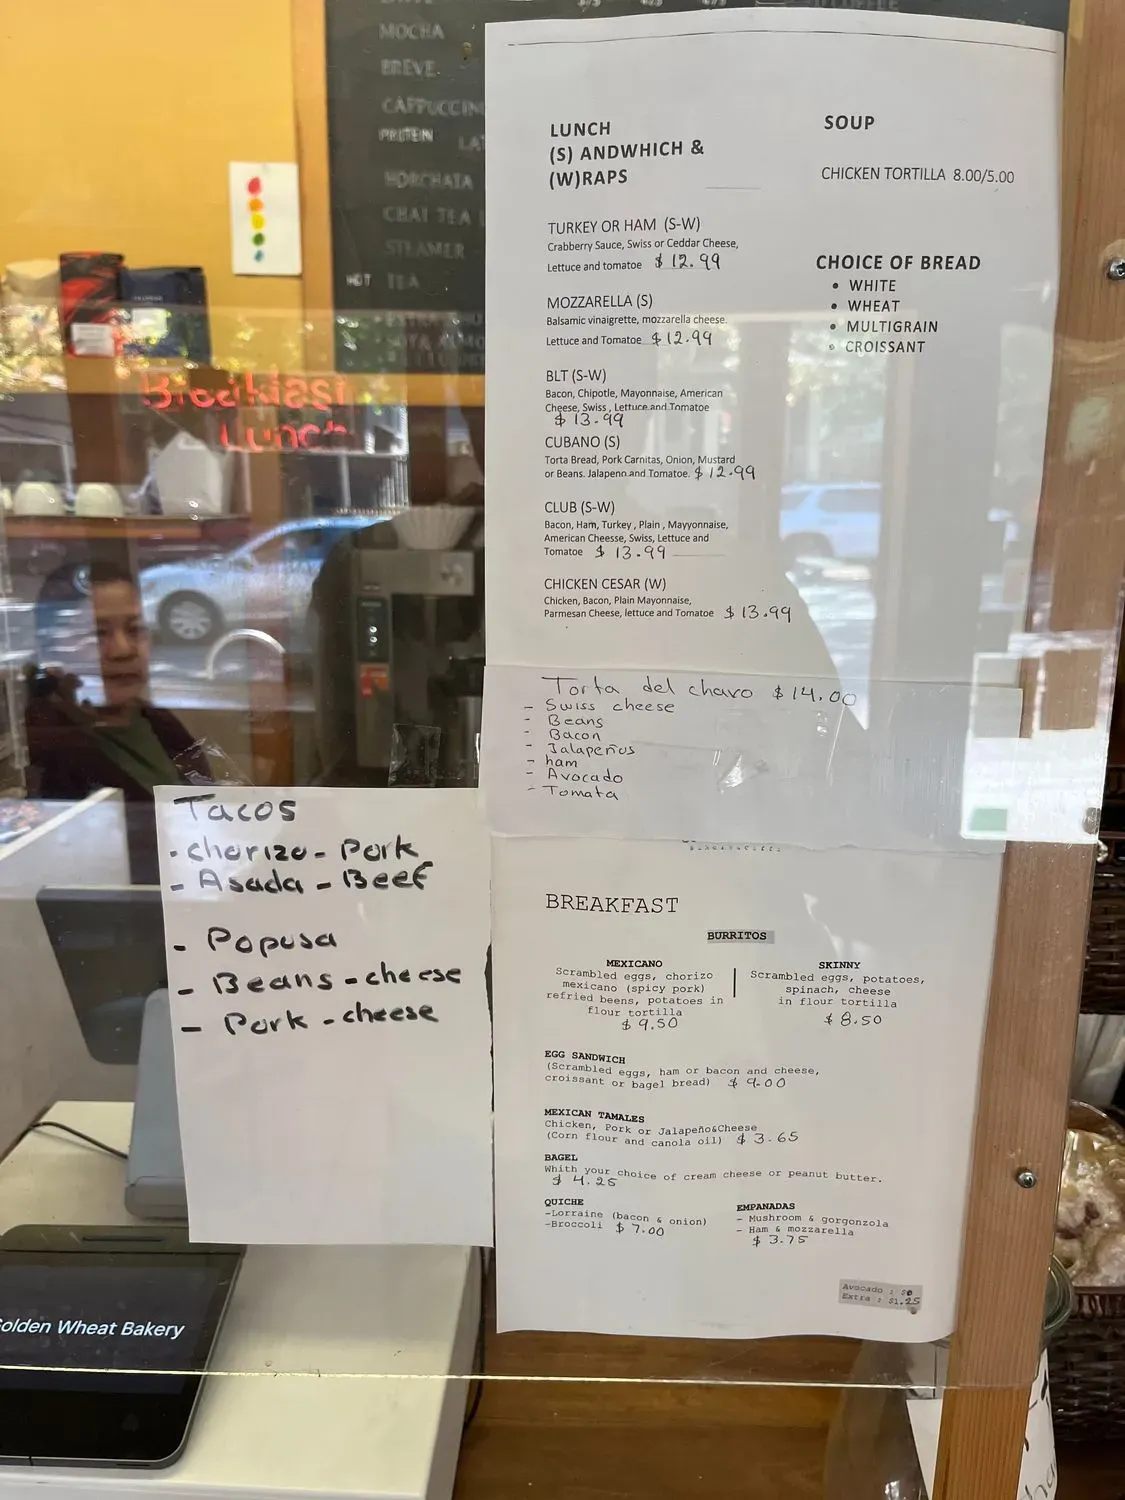 MOCHA
BREVE
CAPPUCCIN
PROTEIN
HORCHATA
CHAI TEA
STEAMER
HOT TEA
Breakfast
Lunch
LUNCH
(S) ANDWHICH &
(W)RAPS
TURKEY OR HAM (S-W)
Crabberry Sauce, Swiss or Ceddar Cheese,
Lettuce and tomatoe $12.99
MOZZARELLA (S)
Balsamic vinaigrette, mozzarella cheese.
Lettuce and Tomatoe $12.99
BLT (S-W)
Bacon, Chipotle, Mayonnaise, American
Cheese, Swiss, Lettuce and Tomatoe
$13.99
CUBANO (S)
Torta Bread, Pork Carnitas, Onion, Mustard
or Beans. Jalapeno and Tomatoe. $12.99
CLUB (S-W)
Bacon, Ham, Turkey, Plain, Mayyonnaise,
American Cheesse, Swiss, Lettuce and
Tomatoe $13.99
CHICKEN CESAR (W)
Chicken, Bacon, Plain Mayonnaise,
Parmesan Cheese, lettuce and Tomatoe $13.99
SOUP
CHICKEN TORTILLA 8.00/5.00
CHOICE OF BREAD
• WHITE
• WHEAT
• MULTIGRAIN
• CROISSANT
Torta del chavo $14.00
- Swiss cheese
- Beans
- Bacon
- Jalapeños
- ham
- Avocado
- Tomata
Tacos
- chorizo - Pork
- Asada - Beef
- Popusa
- Beans - cheese
- Pork - cheese
BREAKFAST
BURRITOS
MEXICANO
Scrambled eggs, chorizo
mexicano (spicy pork)
refried beens, potatoes in
flour tortilla
$9.50
SKINNY
Scrambled eggs, potatoes,
spinach, cheese
in flour tortilla
$8.50
EGG SANDWICH
(Scrambled eggs, ham or bacon and cheese,
croissant or bagel bread) $9.00
MEXICAN TAMALES
Chicken, Pork or Jalapeño&Cheese
(Corn flour and canola oil) $3.65
BAGEL
Whith your choice of cream cheese or peanut butter.
$4.25
QUICHE
-Lorraine (bacon & onion)
-Broccoli $7.00
EMPANADAS
- Mushroom & gorgonzola
- Ham & mozzarella
$3.75
Avocado :
Extra : $1.25
olden Wheat Bakery